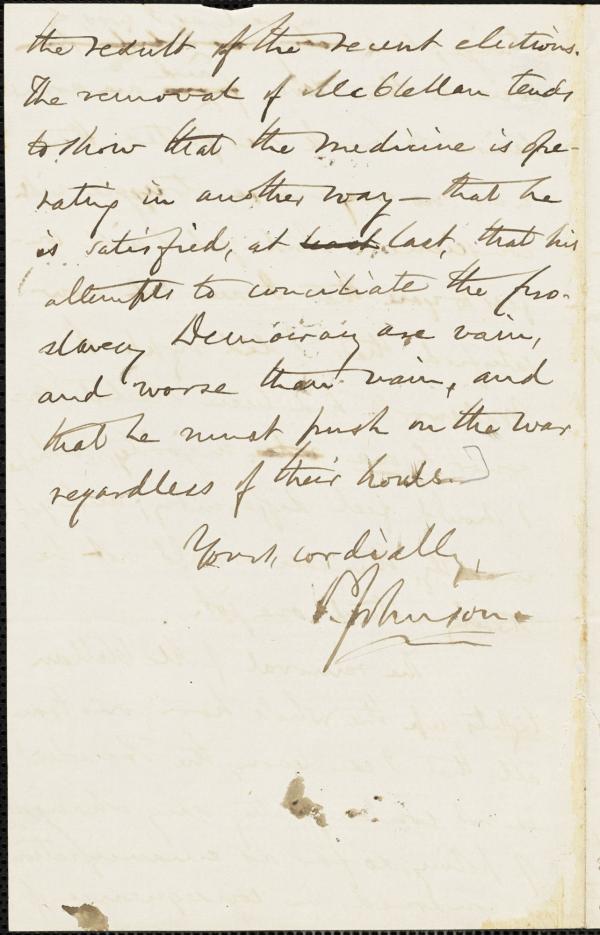 the result of the recent elections.
The removal of McClellan tends
to show that the medicine is ope-
rating in another way — that he
is satisfied, at last, that his
attempts to conciliate the pro-
slavery Democracy are vain,
and worse than vain, and
that he must push on the war
regardless of their howls.]
Yours, cordially,
Johnson